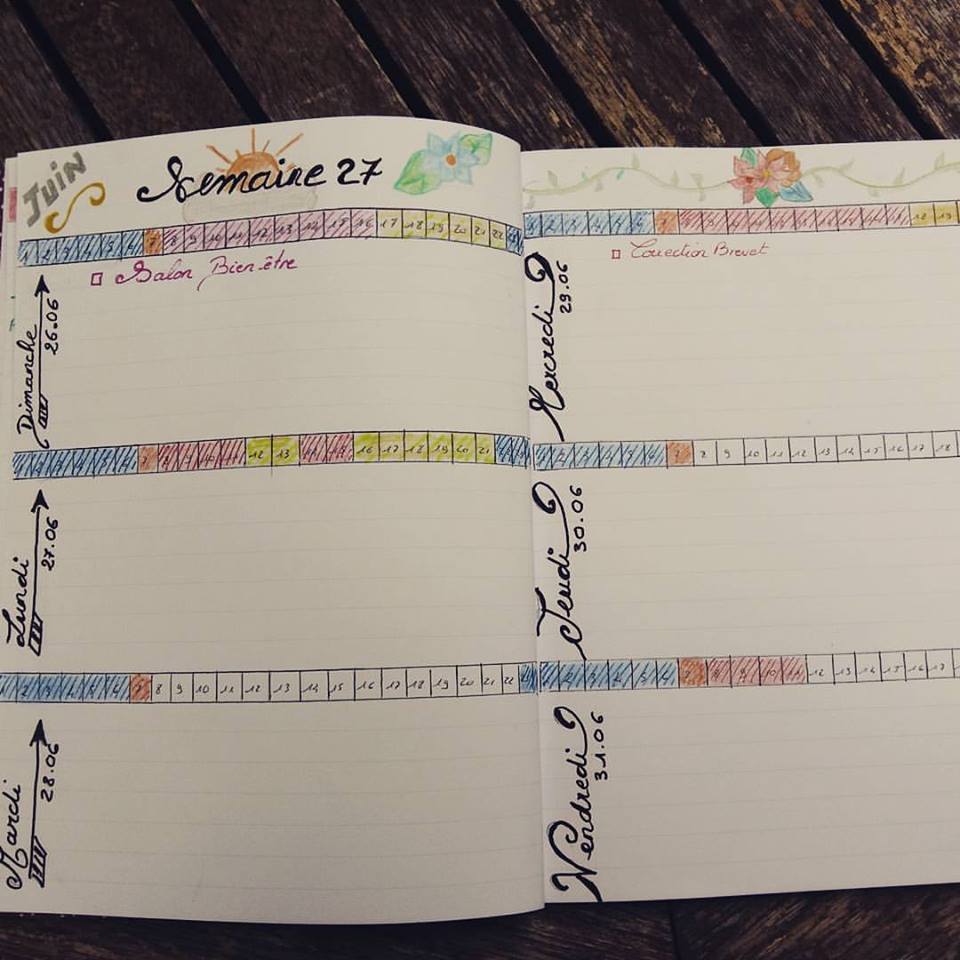 Juin
Semaine 27
1 2 3 4 5 6 7 8 9 10 11 12 13 14 15 16 17 18 19 20 21 22
Salon Bien être
Dimanche
26.06
12 13 16 17 18 19 20 21
Lundi
27.06
1 2 3 4 5 6 7 8 9 10 11 12 13 14 15 16 17 18 19 20 21 22
Mardi
28.06
1 2 3 4 5 6 7 18 19
Correction Brevet
Mercredi
29.06
1 2 3 4 5 6 7 8 9 10 11 12 13 14 15 16 17 18
Jeudi
30.06
1 2 3 4 5 6 7 8 9 10 11 12 13 14 15 16 17
Vendredi
31.06